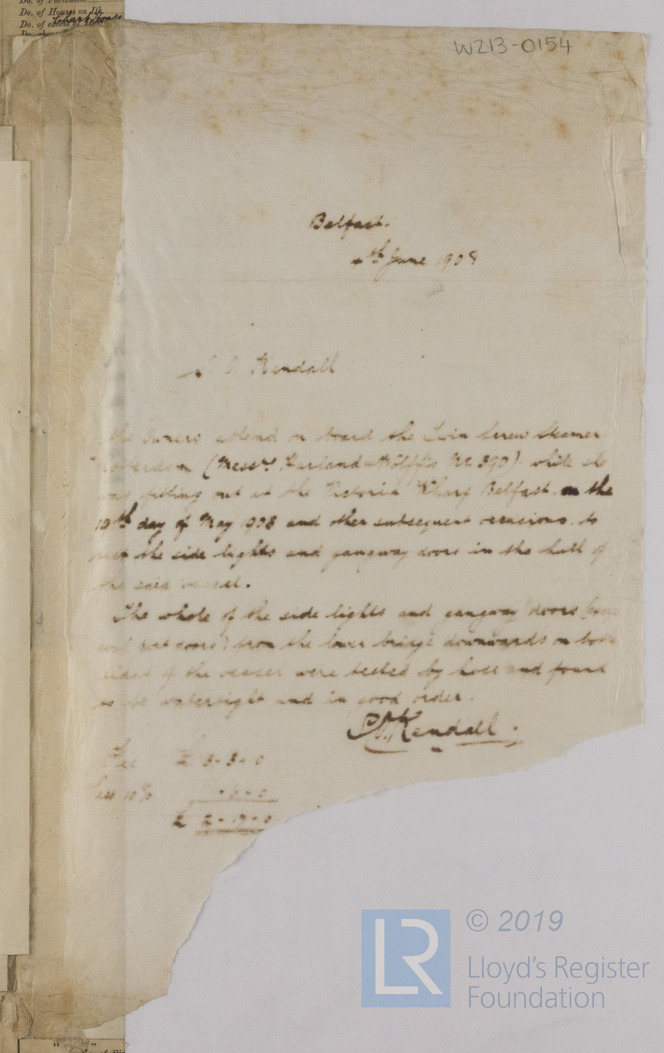 Do. of Houses on Dk.
W213-0154
Belfast.
4th June 1908
Kendall
the Owners attend on board the Twin Screw Steamer
Rotterdam (Messrs Harland & Wolff's No. 390) while she
was fitting out at the Victoria Wharf Belfast, on the
19th day of May 1908 and other subsequent occasions, to
the side lights and gangway doors in the hull of
the said vessel.
The whole of the side lights and gangway doors
doors) from the lower bridge downwards on both
sides of the vessel were tested by hose and found
to be watertight and in good order.
Kendall.
Fee £ 3-3-0
Less 10% -6-0
£ 2-17-0
© 2019
LR
Lloyd's Register
Foundation